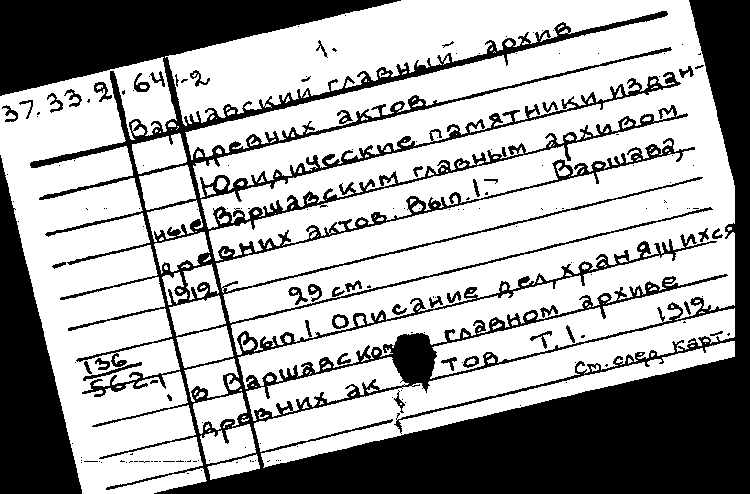 1.
37.33.2.64 1-2
Варшавский главный архив
древних актов.
Юридические памятники, издан-
ные Варшавским главным архивом
древних актов. Вып.1.- Варшава,
1912-
29 см.
Вып.1. Описание дел, хранящихся
136
562-1 в Варшавском главном архиве
древних ак тов. Т.1. 1912.
См. след. карт.